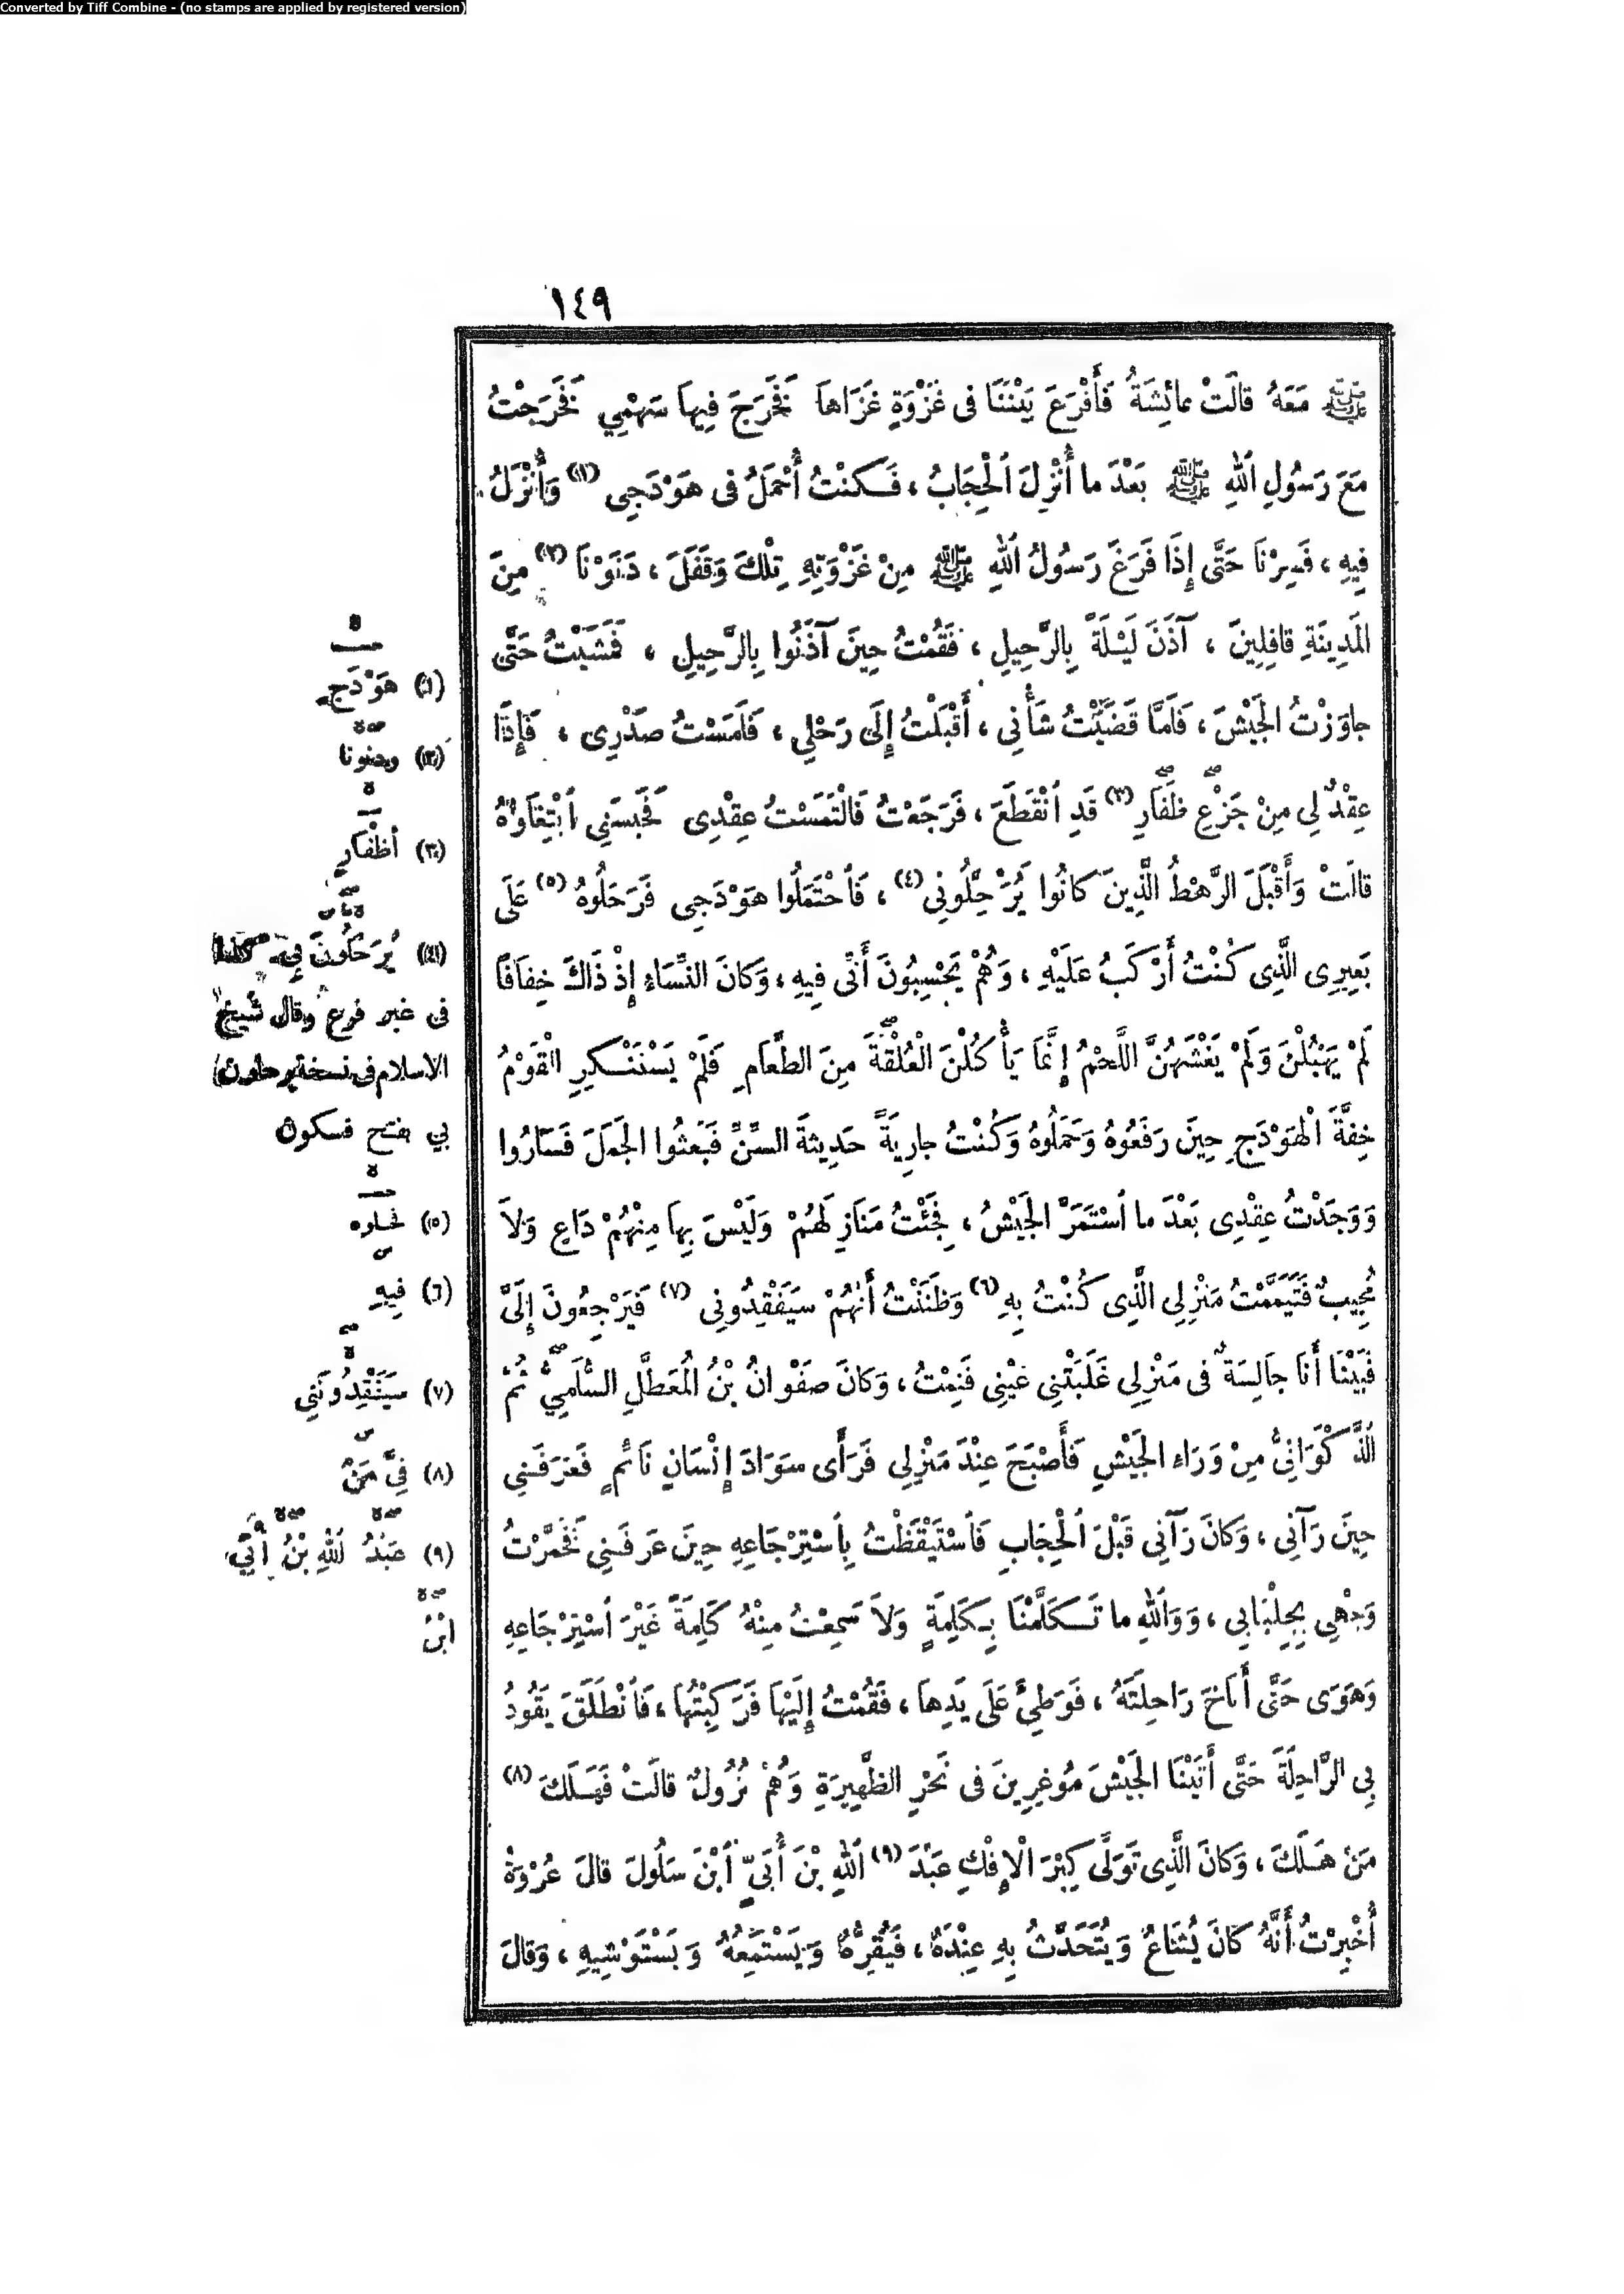 Converted by Tiff Combine - (no stamps are applied by registered version)
١٤٩
ﷺ مَعَهُ قالَتْ عائِشَةُ فَأَقْرَعَ بَيْنَنَا فى غَزْوَةٍ غَزَاها فَخَرَجَ فِيها سَهْمِي فَخَرَجْتُ
مَعَ رَسُولِ اللهِ ﷺ بَعْدَ ما أُنْزِلَ الْحِجَابُ ، فَكُنْتُ أُحْمَلُ فى هَوْدَجِى (١) وَأُنْزَلُ
فِيهِ ، فَسِرْنَا حَتَّى إِذَا فَرَغَ رَسُولُ اللهِ ﷺ مِنْ غَزْوَتِهِ تِلْكَ وَقَفَلَ ، دَنَوْنَا (٢) مِنَ
الْمَدِينَةِ قافِلِينَ ، آذَنَ لَيْلَةً بِالرَّحِيلِ ، فَقُمْتُ حِينَ آذَنُوا بِالرَّحِيلِ ، فَمَشَيْتُ حَتَّى
جاوَزْتُ الجَيْشَ ، فَلَمَّا قَضَيْتُ شَأْنِي ، أَقْبَلْتُ إِلَى رَحْلِي ، فَلَمَسْتُ صَدْرِى ، فَإِذَا
عِقْدٌ لِي مِنْ جَزْعِ ظَفَارِ (٣) قَدِ انْقَطَعَ ، فَرَجَعْتُ فَالْتَمَسْتُ عِقْدِى فَحَبَسَنِي ابْتِغَاؤُهُ
قالَتْ وَأَقْبَلَ الرَّهْطُ الَّذِينَ كانُوا يُرَحِّلُونِي (٤) ، فَاحْتَمَلُوا هَوْدَجِى فَرَحَلُوهُ (٥) عَلَى
بَعِيرِى الَّذِى كُنْتُ أَرْكَبُ عَلَيْهِ ، وَهُمْ يَحْسِبُونَ أَنِّى فِيهِ ، وَكَانَ النِّسَاءِ إِذْ ذَاكَ خِفَافًا
لَمْ يَهْبُلْنَ وَلَمْ يَغْشَهُنَّ اللَّحْمُ إِنَّمَا يَأْكُلْنَ الْعُلْقَةَ مِنَ الطَّعَامِ فَلَمْ يَسْتَنْكِرِ الْقَوْمُ
خِفَّةَ الْهَوْدَجِ حِينَ رَفَعُوهُ وَحَمَلُوهُ وَكُنْتُ جارِيَةً حَدِيثَةَ السِّنِّ فَبَعَثُوا الجَمَلَ فَسَارُوا
وَوَجَدْتُ عِقْدِى بَعْدَ ما اسْتَمَرَّ الجَيْشُ ، فَجِئْتُ مَنَازِلَهُمْ وَلَيْسَ بِها مِنْهُمْ دَاعٍ وَلاَ
مُجِيبٌ فَتَيَمَّمْتُ مَنْزِلِي الَّذِى كُنْتُ بِهِ (٦) وَظَنَنْتُ أَنَّهُمْ سَيَفْقِدُونِي (٧) فَيَرْجِعُونَ إِلَىَّ
فَبَيْنَا أَنَا جَالِسَةٌ فى مَنْزِلِي غَلَبَتْنِي عَيْنِي فَنِمْتُ ، وَكَانَ صَفْوَانُ بْنُ الْمُعَطَّلِ السُّلَمِيُّ ثُمَّ
الذَّكْوَانِيُّ مِنْ وَرَاءِ الجَيْشِ فَأَصْبَحَ عِنْدَ مَنْزِلِي فَرَأَى سَوَادَ إِنْسَانٍ نَائِمٍ فَعَرَفَنِي
حِينَ رَآنِى ، وَكَانَ رَآنِي قَبْلَ الْحِجَابِ فَاسْتَيْقَظْتُ بِاسْتِرْجَاعِهِ حِينَ عَرَفَنِي فَخَمَّرْتُ
وَجْهِي بِجِلْبَابِي ، وَوَاللهِ ما تَكَلَّمْنَا بِكَلِمَةٍ وَلاَ سَمِعْتُ مِنْهُ كَلِمَةً غَيْرَ اسْتِرْجَاعِهِ
وَهَوَى حَتَّى أَنَاخَ رَاحِلَتَهُ ، فَوَطِئَ عَلَى يَدِها ، فَقُمْتُ إِلَيْهَا فَرَكِبْتُهَا ، فَانْطَلَقَ يَقُودُ
بِي الرَّاحِلَةَ حَتَّى أَتَيْنَا الجَيْشَ مُوغِرِينَ فى نَحْرِ الظَّهِيرَةِ وَهُمْ نُزُولٌ قالَتْ فَهَلَكَ (٨)
مَنْ هَلَكَ ، وَكَانَ الَّذِى تَوَلَّى كِبْرَ الْإِفْكِ عَبْدَ (٩) اللهِ بْنَ أُبَيٍّ ابْنَ سَلُولَ قالَ عُرْوَةُ
أُخْبِرْتُ أَنَّهُ كَانَ يُشَاعُ وَيُتَحَدَّثُ بِهِ عِنْدَهُ ، فَيُقِرُّهُ وَيَسْتَمِعُهُ وَيَسْتَوْشِيهِ ، وَقالَ
(١) هَوْدَجٍ
(٢) ودنونا
(٣) أظْفَارِ
(٤) يُرَحِّلُونَ بِي كذا
فى غير فرع وقال شيخ
الاسلام فى نسخة يرحلون
بي بفتح فسكون
(٥)
(٦) فِيهِ
(٧) سَيَفْقِدُونَنِي
(٨) فِيَّ مَنْ
(٩) عَبْدُ اللهِ بْنُ أُبَيٍّ
ابْنُ